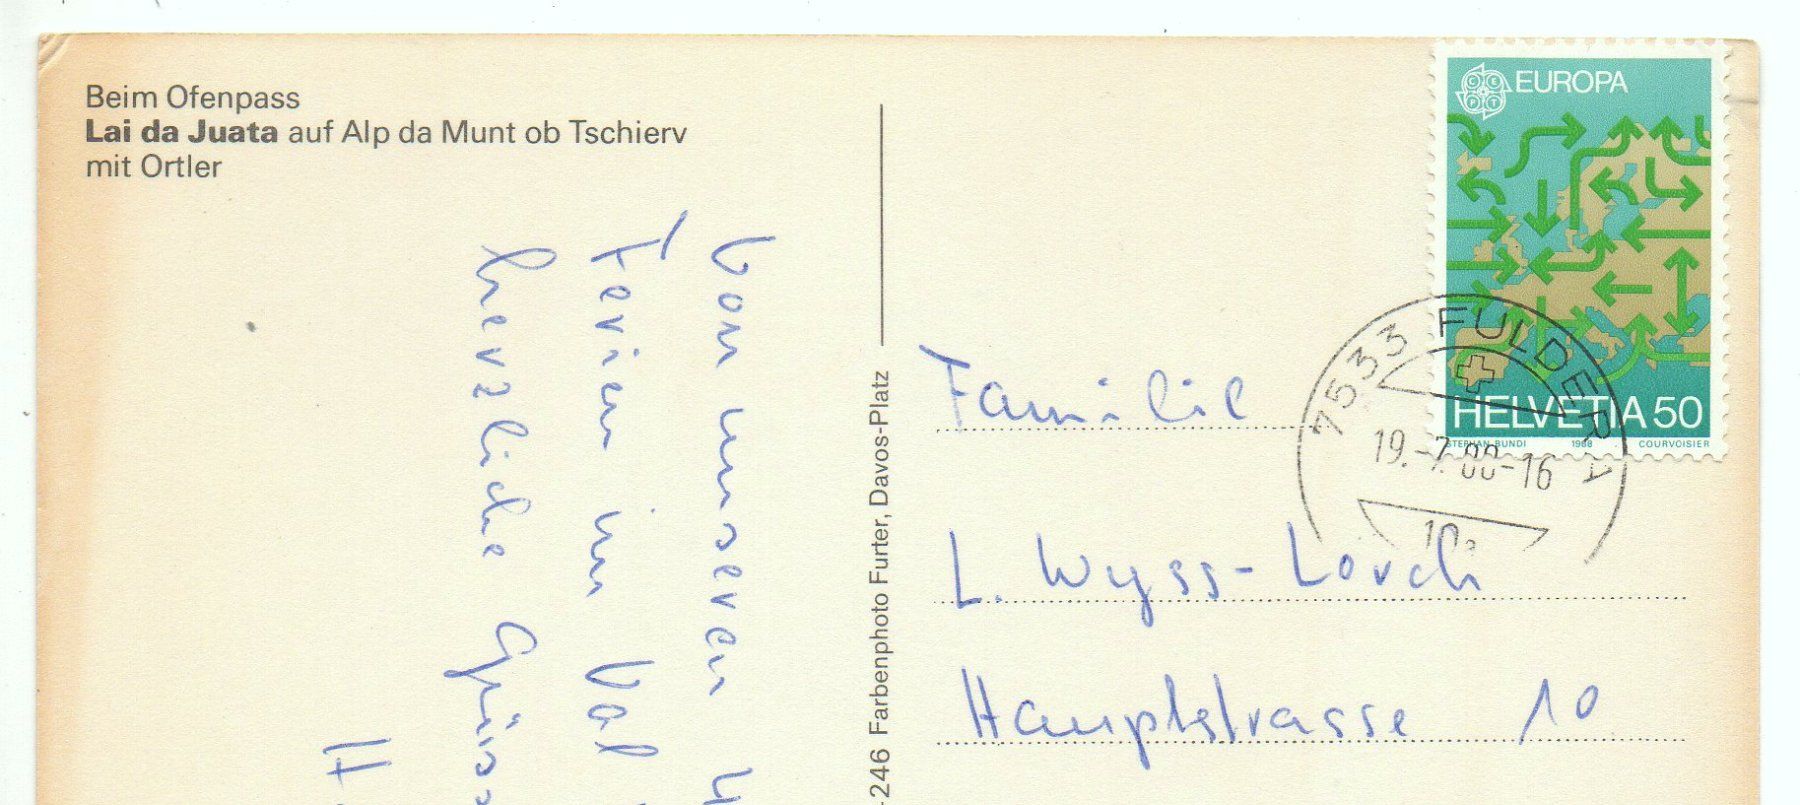 Beim Ofenpass
Lai da Juata auf Alp da Munt ob Tschierv
mit Ortler
Von unseren
Ferien im Val
herzliche Grüss
H
246 Farbenphoto Furter, Davos-Platz
CEPT EUROPA
HELVETIA 50
STEPHAN BUNDI 1988 COURVOISIER
7533 FULDERA
19.-7.88-16
Familie
L. Wyss-Lorch
Hauptstrasse 10